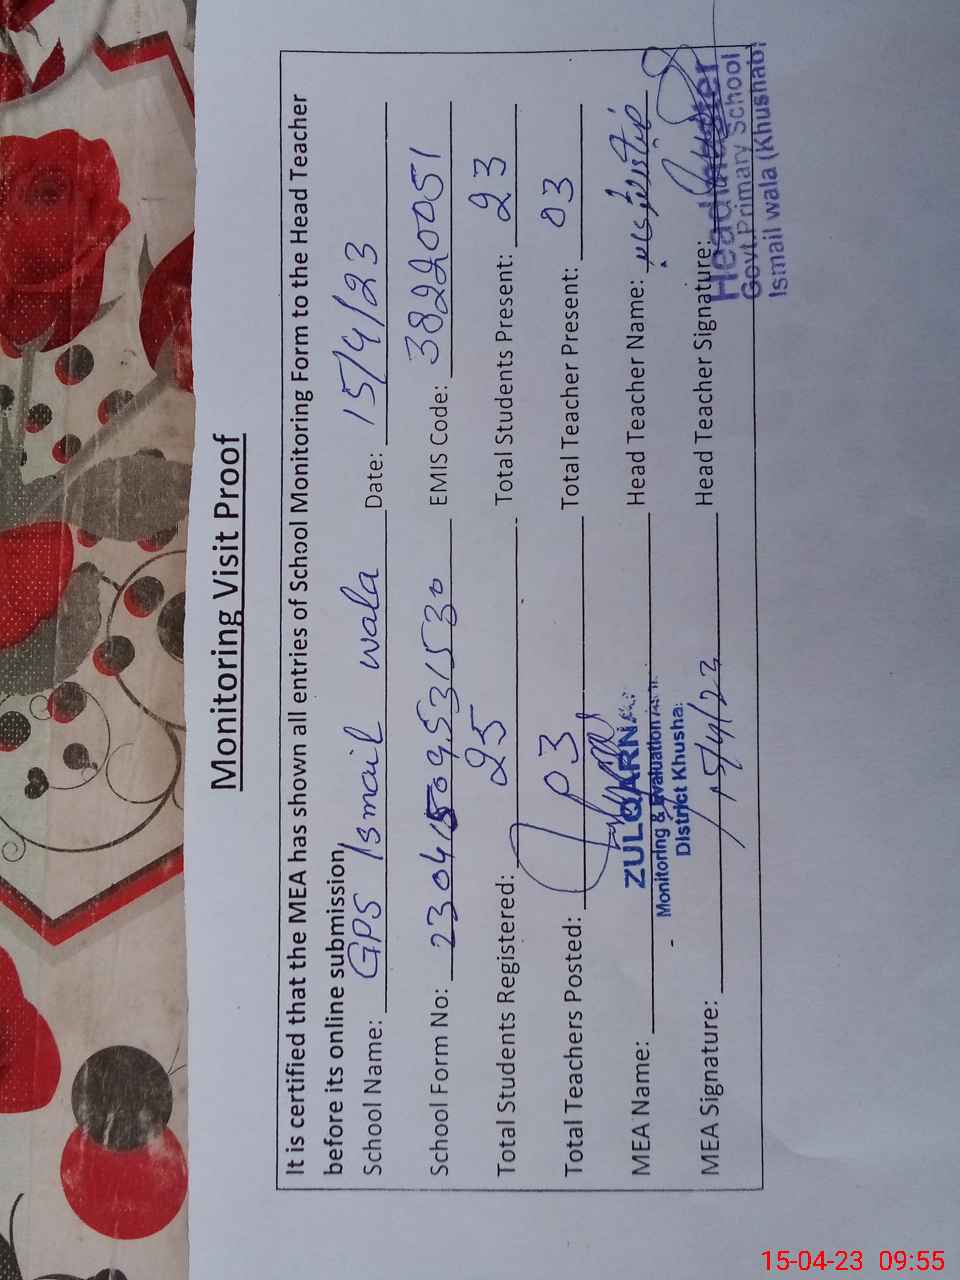 Monitoring Visit Proof
It is certified that the MEA has shown all entries of School Monitoring Form to the Head Teacher
before its online submission
School Name: GPS Ismail wala Date: 15/4/23
School Form No: EMIS Code: 38220051
Total Students Registered: 25 Total Students Present: 23
Total Teachers Posted: 03 Total Teacher Present: 03
MEA Name: Head Teacher Name:
ZULQARNA
Monitoring & Evaluation
District Khusha
MEA Signature: 15/4/23 Head Teacher Signature:
Headmaster
Govt. Primary School
Ismail wala (Khushab)
15-04-23 09:55